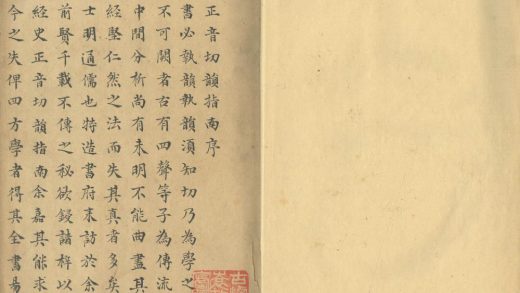 正音切韻指南序
書必執韻執韻須知切乃為學之
不可闕者古有四聲等子為傳流
中間分析尚有未明不能曲盡其
經堅仁然之法而失其真者多矣
士明通儒也特造書府來訪於余
前賢千載不傳之秘欲鋟諸梓以
經史正音切韻指南余嘉其能求
今之失俾四方學者得其全書易